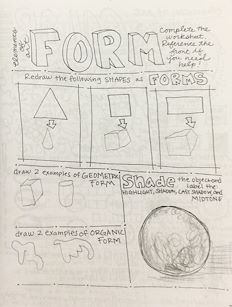 elements of art
FORM
Complete the
worksheet.
Reference the
front if
you need
help!
Redraw the following SHAPES as FORMS
draw 2 examples of GEOMETRIC
FORM
Shade the object and
label the:
HIGHLIGHT, SHADOW, CAST SHADOW, and
MIDTONE
draw 2 examples of ORGANIC
FORM